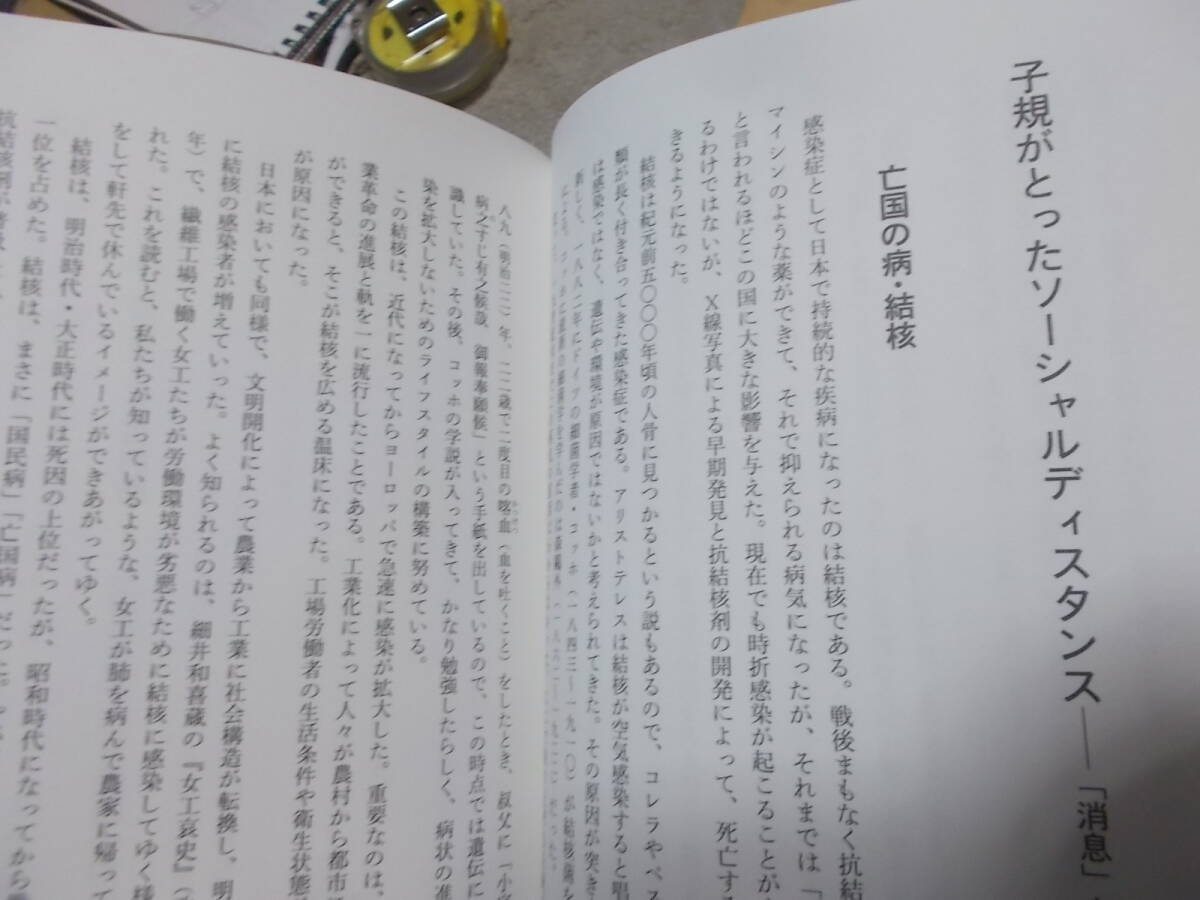 子規がとったソーシャルディスタンス――「消息」
亡国の病・結核
感染症として日本で持続的な疾病になったのは結核である。戦後まもなく抗結
マイシンのような薬ができて、それで抑えられる病気になったが、それまでは「
と言われるほどこの国に大きな影響を与えた。現在でも時折感染が起こることが
るわけではないが、X線写真による早期発見と抗結核剤の開発によって、死亡する
きるようになった。
結核は紀元前五〇〇〇年頃の人骨に見つかるという説もあるので、コレラやペス
類が長く付き合ってきた感染症である。アリストテレスは結核が空気感染すると唱
は感染ではなく、遺伝や環境が原因ではないかと考えられてきた。その原因が突き
新しく、一八八二年にドイツの細菌学者・コッホ（一八四三―一九一〇）が結核菌を
八九（明治二二）年、二二歳で二度目の喀血（血を吐くこと）をしたとき、叔父に「小
病之すじ有之候哉、御報奉願候」という手紙を出しているので、この時点では遺伝に
識していた。その後、コッホの学説が入ってきて、かなり勉強したらしく、病状の進
染を拡大しないためのライフスタイルの構築に努めている。
この結核は、近代になってからヨーロッパで急速に感染が拡大した。重要なのは、
業革命の進展と軌を一に流行したことである。工業化によって人々が農村から都市
ができると、そこが結核を広める温床になった。工場労働者の生活条件や衛生状態
が原因になった。
日本においても同様で、文明開化によって農業から工業に社会構造が転換し、明
に結核の感染者が増えていった。よく知られるのは、細井和喜蔵の『女工哀史』（
年）で、繊維工場で働く女工たちが労働環境が劣悪なために結核に感染してゆく様
れた。これを読むと、私たちが知っているような、女工が肺を病んで農家に帰って
をして軒先で休んでいるイメージができあがってゆく。
結核は、明治時代・大正時代は死因の上位だったが、昭和時代になってから
一位を占めた。結核は、まさに「国民病」「亡国病」だった。